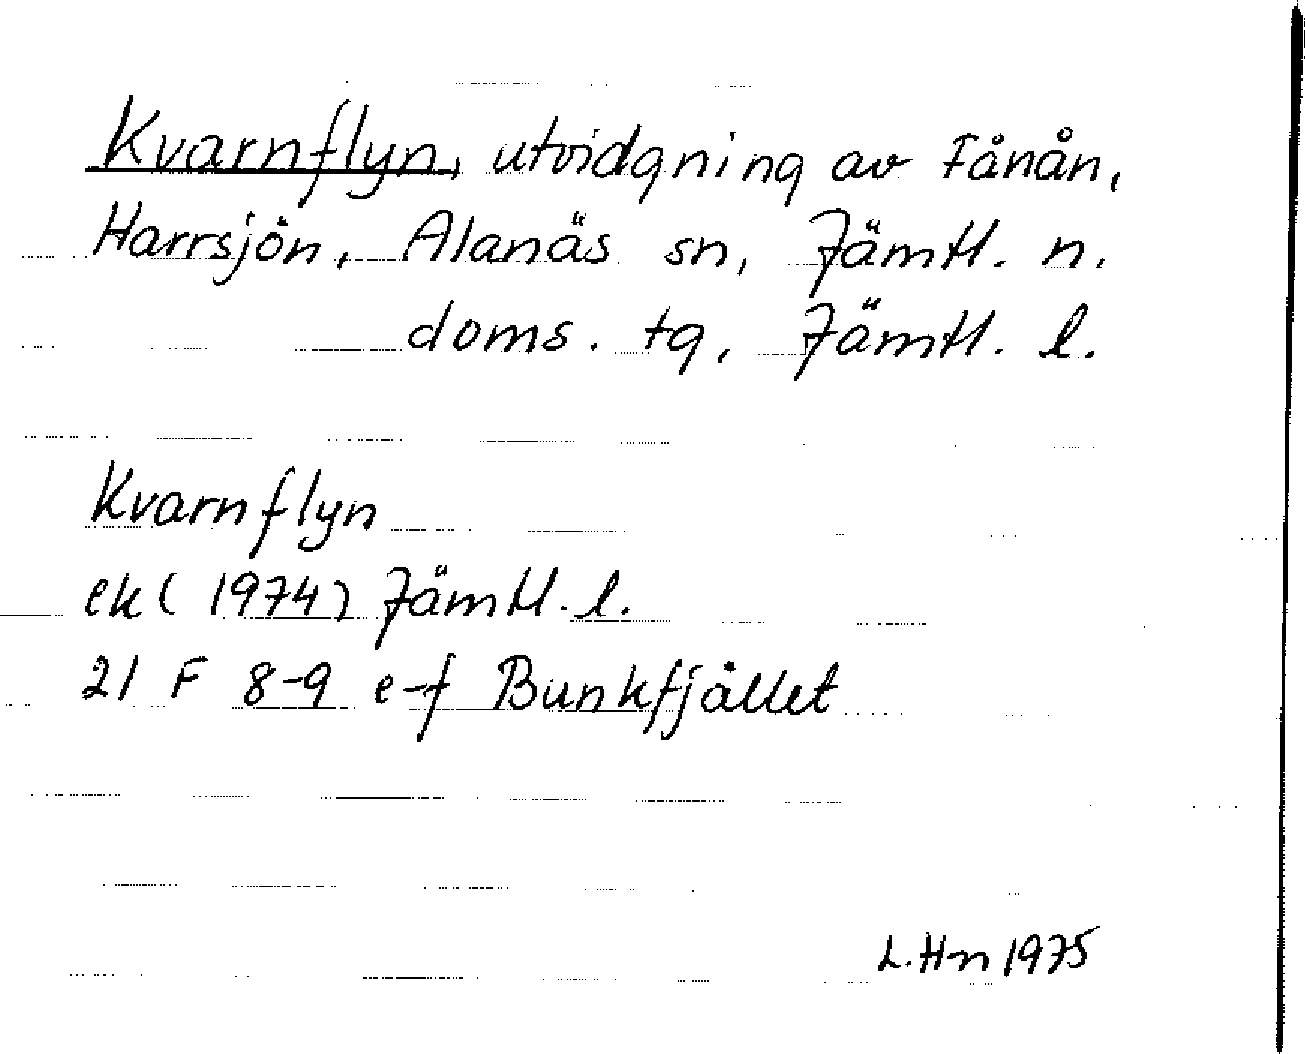 Kvarnflyn, utvidgning av Fånån,
Harrsjön, Alanäs sn, Jämtl. n.
doms. tg, Jämtl. l.
Kvarnflyn
ek (1974) Jämtl. l.
21 F 8-9 e-f Bunkfjället
L.Hn 1975